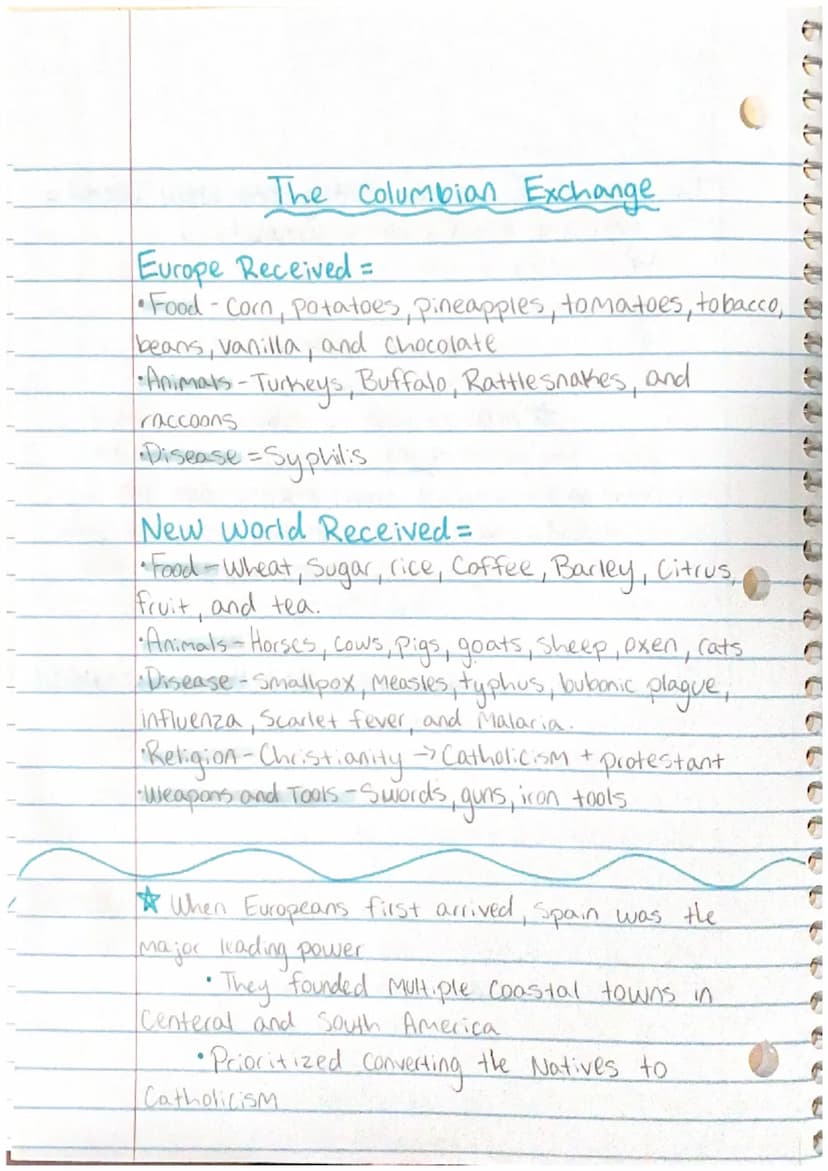 The Columbian Exchange
Europe Received =
•Food - Corn, potatoes, pineapples, tomatoes, tobacco,
beans, vanilla, and chocolate
•Animals - Turkeys, Buffalo, Rattlesnakes, and
raccoons
•Disease = Syphilis
New World Received =
•Food - Wheat, Sugar, rice, Coffee, Barley, Citrus,
fruit, and tea.
•Animals - Horses, Cows, pigs, goats, sheep, oxen, rats
•Disease - Smallpox, Measles, typhus, bubonic plague,
influenza, Scarlet fever, and Malaria.
•Religion - Christianity → Catholicism + protestant
•Weapons and Tools - Swords, guns, iron tools
☆ When Europeans first arrived, Spain was the
major leading power
• They founded Multiple coastal towns in
Centeral and South America
• Prioritized converting the Natives to
Catholicism